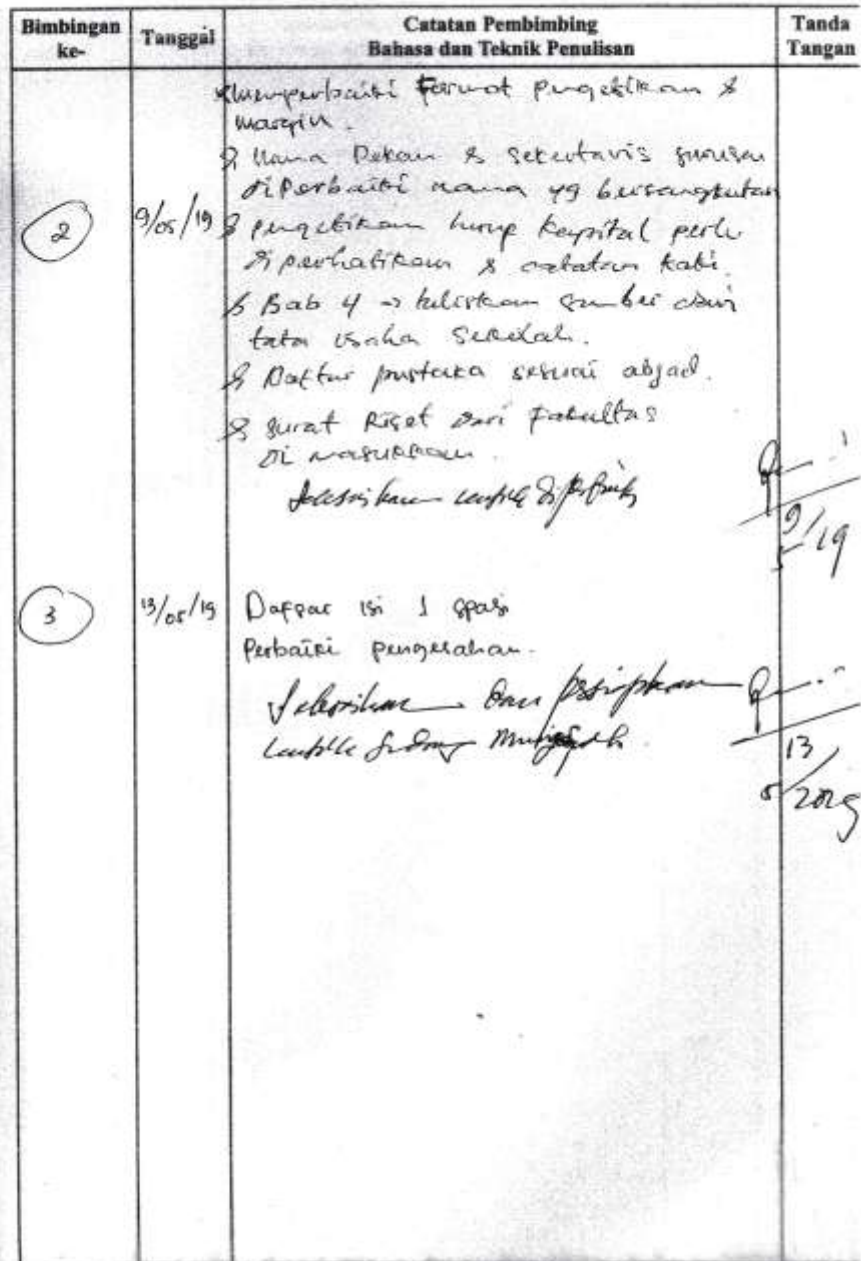 Bimbingan ke-
Tanggal
Catatan Pembimbing
Bahasa dan Teknik Penulisan
Tanda Tangan
memperbaiki Format pengetikan &
margin.
& Nama Dekan & sekretaris
diperbaiki nama yg bersangkutan
2
9/05/19
& pengetikan hurup kapital perlu
diperhatikan & catatan kaki.
& Bab 4 → tuliskan sumber dari
tata usaha sekolah.
& Daftar pustaka sesuai abjad.
& Surat Riset dari Fakultas
di masukkan.
9/5-19
3
13/05/19
Daftar isi 1 spasi
Perbaiki pengesahan.
13
5/2019